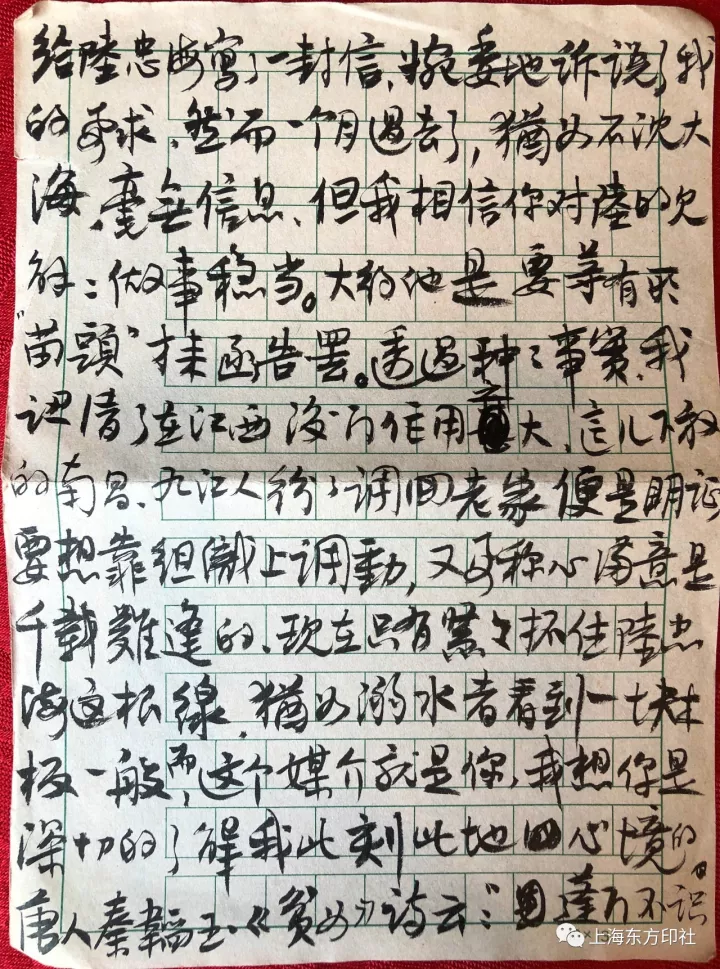 给陸忠海寫了一封信、婉委地诉说了我
的要求、然而一个月過去了，猶如石沈大
海，毫無信息、但我相信你对陸的欠
解：做事稳当。大约他是要等有所
“苗頭”才来函告罢。透過种々事實、我
认清了在江西後门作用之大、這儿下放
的南昌、九江人纷々调回老家便是明证
要想靠组織上调動，又要称心满意是
千載難逢的、现在只有緊々抓住陸忠
海这根線，猶如溺水者看到一块木
板一般，而这个媒介就是你，我想你是
深切的了解我此刻此地心境的。
唐人秦韜玉《贫女》诗云：“蓬门不识
上海东方印社